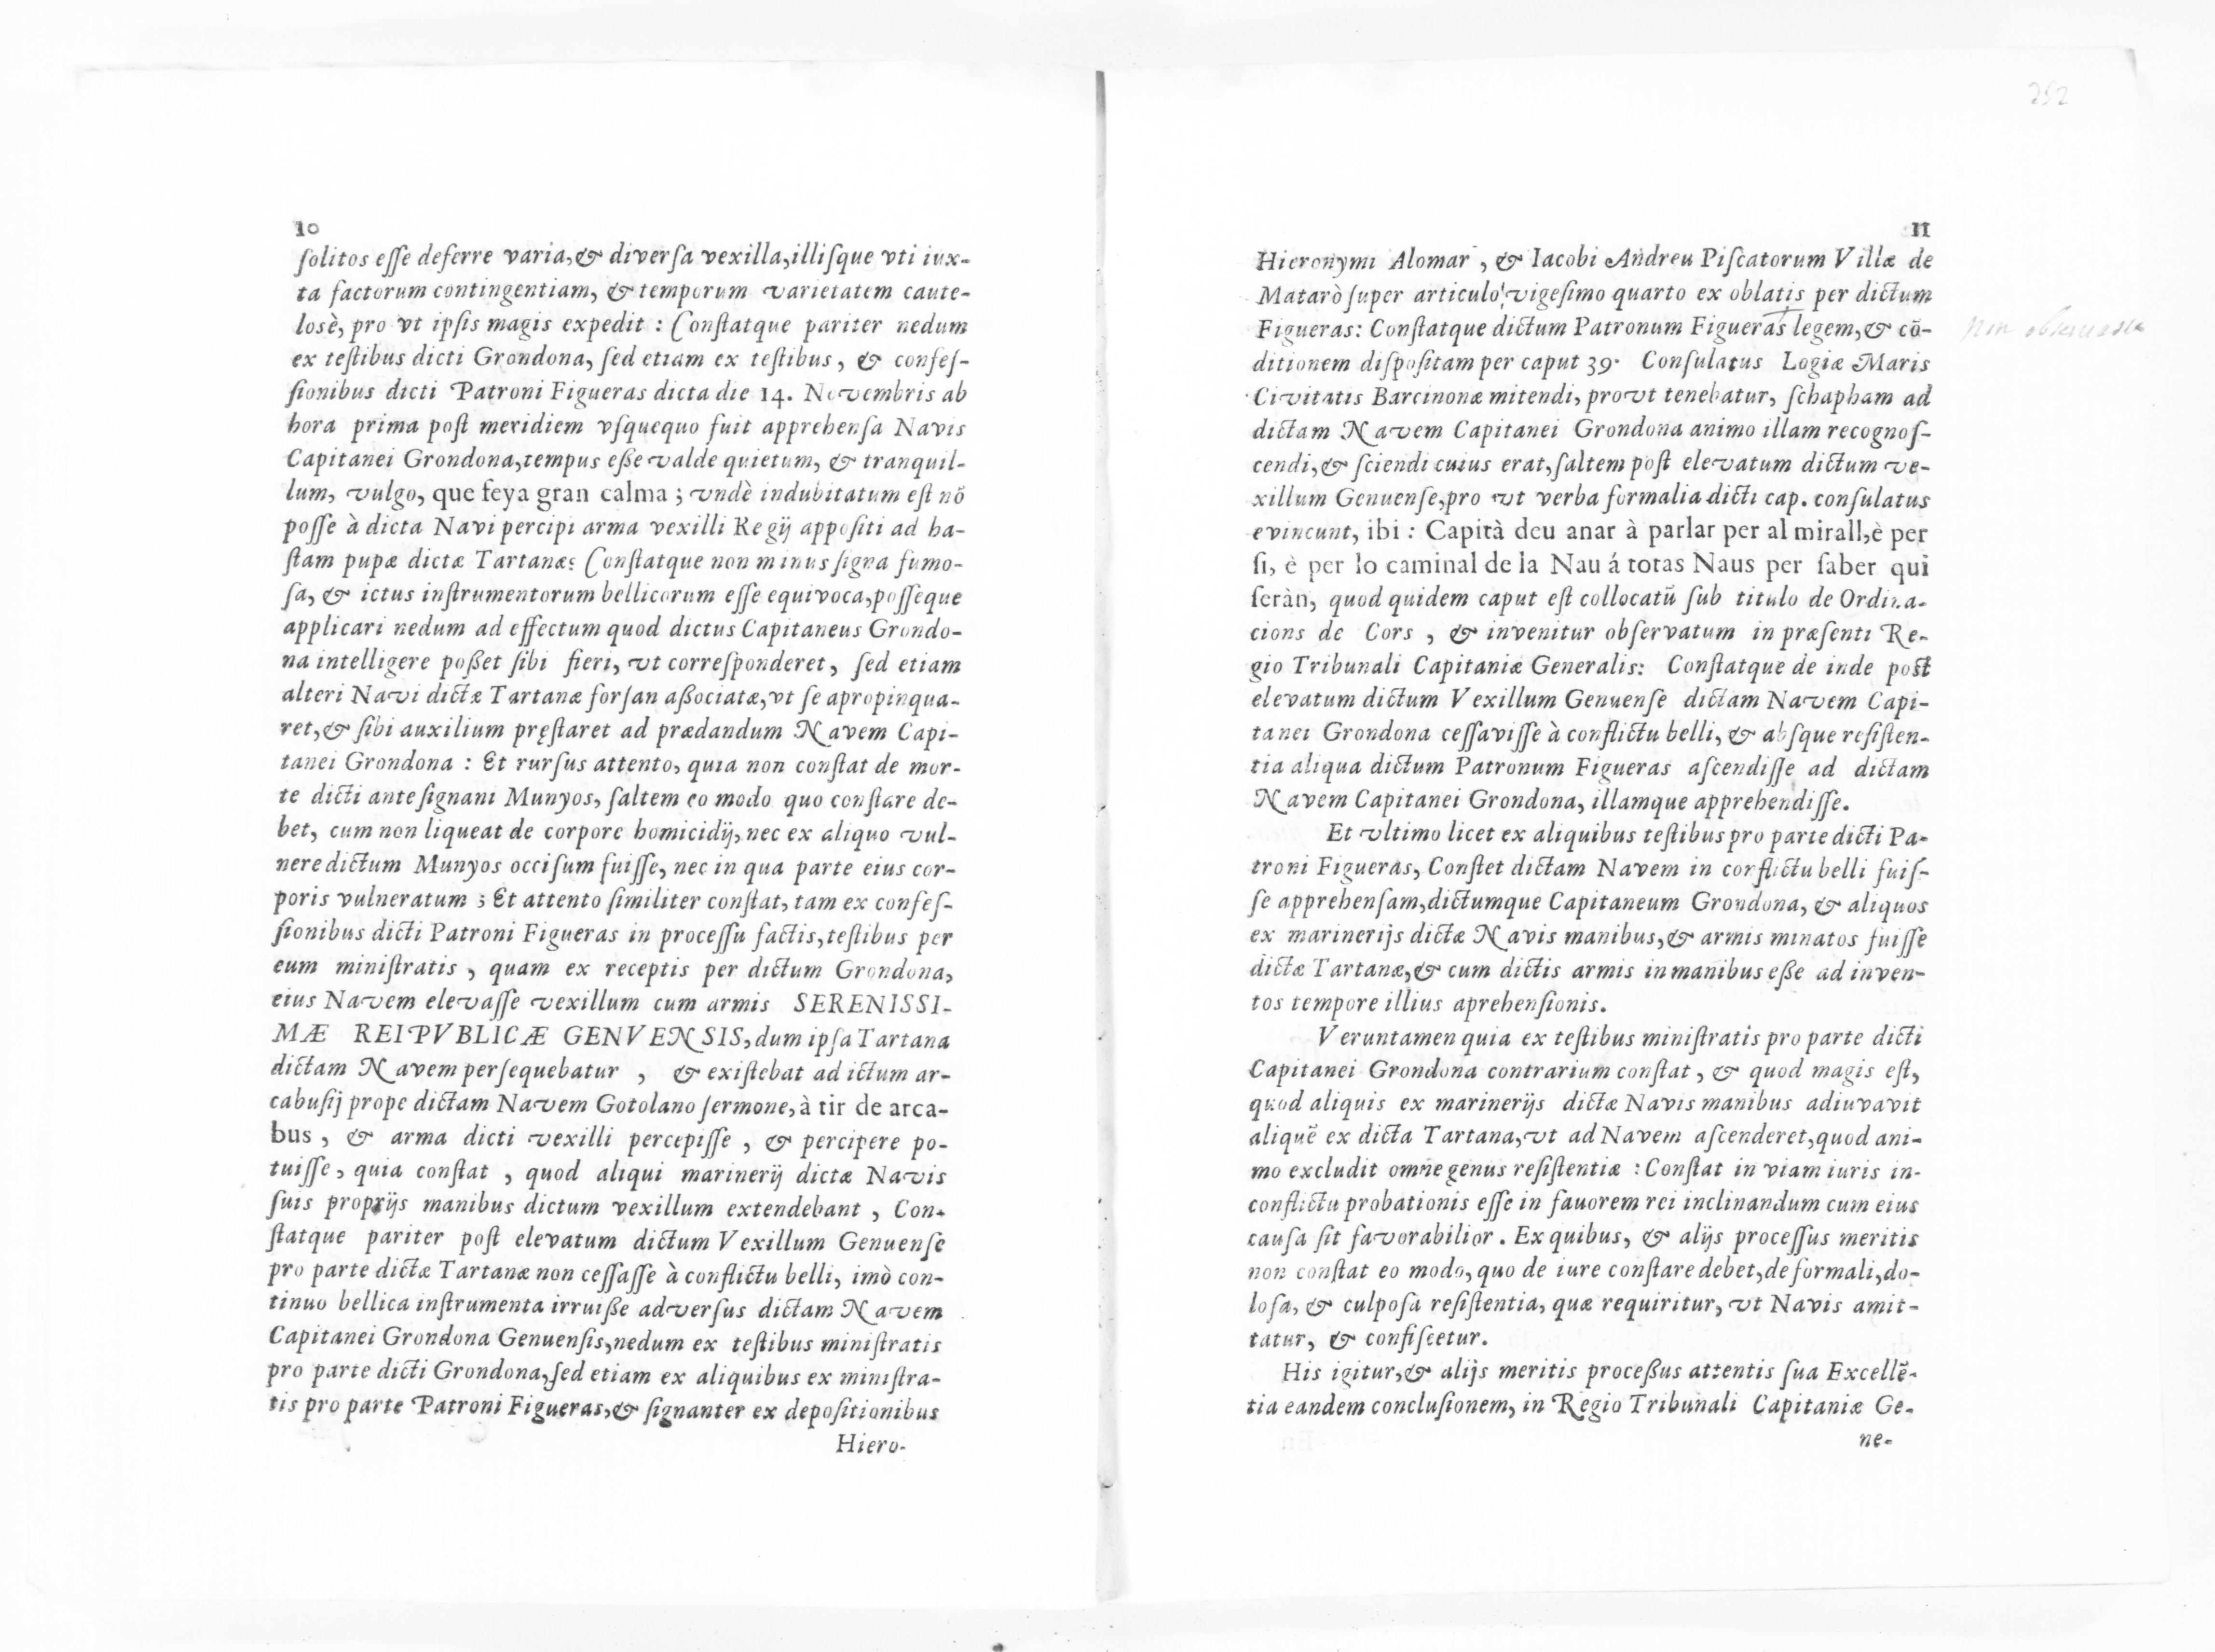 10
ſolitos eſſe deferre varia, & diverſa vexilla, illiſque vti iux-
ta factorum contingentiam, & temporum varietatem caute-
losè, pro vt ipſis magis expedit : Conſtatque pariter nedum
ex teſtibus dicti Grondona, ſed etiam ex teſtibus, & confeſ-
ſionibus dicti Patroni Figueras dicta die 14. Novembris ab
hora prima poſt meridiem vſquequo fuit apprehenſa Navis
Capitanei Grondona, tempus eße valde quietum, & tranquil-
lum, vulgo, que feya gran calma ; vndè indubitatum eſt nõ
poſſe à dicta Navi percipi arma vexilli Regij appoſiti ad ha-
ſtam pupæ dictæ Tartanæ: Conſtatque non minus ſigna fumo-
ſa, & ictus inſtrumentorum bellicorum eſſe equivoca, poſſeque
applicari nedum ad effectum quod dictus Capitaneus Grondo-
na intelligere poßet ſibi fieri, vt correſponderet, ſed etiam
alteri Navi dictæ Tartanæ forſan aßociatæ, vt ſe apropinqua-
ret, & ſibi auxilium pręſtaret ad prædandum Navem Capi-
tanei Grondona : Et rurſus attento, quia non conſtat de mor-
te dicti anteſignani Munyos, ſaltem eo modo quo conſtare de-
bet, cum non liqueat de corpore homicidij, nec ex aliquo vul-
nere dictum Munyos occiſum fuiſſe, nec in qua parte eius cor-
poris vulneratum ; Et attento ſimiliter conſtat, tam ex confeſ-
ſionibus dicti Patroni Figueras in proceſſu factis, teſtibus per
eum miniſtratis , quam ex receptis per dictum Grondona,
eius Navem elevaſſe vexillum cum armis SERENISSI-
MÆ REIPVBLICÆ GENVENSIS, dum ipſa Tartana
dictam Navem perſequebatur , & exiſtebat ad ictum ar-
cabuſij prope dictam Navem Gotolano ſermone, à tir de arca-
bus , & arma dicti vexilli percepiſſe , & percipere po-
tuiſſe, quia conſtat , quod aliqui marinerij dictæ Navis
ſuis proprijs manibus dictum vexillum extendebant , Con-
ſtatque pariter poſt elevatum dictum Vexillum Genuenſe
pro parte dictæ Tartanæ non ceſſaſſe à conflictu belli, imò con-
tinuo bellica inſtrumenta irruiße adverſus dictam Navem
Capitanei Grondona Genuenſis, nedum ex teſtibus miniſtratis
pro parte dicti Grondona, ſed etiam ex aliquibus ex miniſtra-
tis pro parte Patroni Figueras, & ſignanter ex depoſitionibus
Hiero-
252
11
Hieronymi Alomar , & Iacobi Andreu Piſcatorum Villæ de
Matarò ſuper articulo vigeſimo quarto ex oblatis per dictum
Figueras: Conſtatque dictum Patronum Figueras legem, & cõ-
non
ditionem diſpoſitam per caput 39. Conſulatus Logiæ Maris
Civitatis Barcinonæ mitendi, provt tenebatur, ſchapham ad
dictam Navem Capitanei Grondona animo illam recognoſ-
cendi, & ſciendi cuius erat, ſaltem poſt elevatum dictum ve-
xillum Genuenſe, pro vt verba formalia dicti cap. conſulatus
evincunt, ibi : Capità deu anar à parlar per al mirall, è per
ſi, è per lo caminal de la Nau á totas Naus per ſaber qui
ſeràn, quod quidem caput eſt collocatũ ſub titulo de Ordina-
cions de Cors , & invenitur obſervatum in præſenti Re-
gio Tribunali Capitaniæ Generalis: Conſtatque de inde poſt
elevatum dictum Vexillum Genuenſe dictam Navem Capi-
tanei Grondona ceſſaviſſe à conflictu belli, & abſque reſiſten-
tia aliqua dictum Patronum Figueras aſcendiſſe ad dictam
Navem Capitanei Grondona, illamque apprehendiſſe.
Et vltimo licet ex aliquibus teſtibus pro parte dicti Pa-
troni Figueras, Conſtet dictam Navem in conflictu belli fuiſ-
ſe apprehenſam, dictumque Capitaneum Grondona, & aliquos
ex marinerijs dictæ Navis manibus, & armis minatos fuiſſe
dictæ Tartanæ, & cum dictis armis in manibus eße ad inven-
tos tempore illius aprehenſionis.
Veruntamen quia ex teſtibus miniſtratis pro parte dicti
Capitanei Grondona contrarium conſtat, & quod magis eſt,
quod aliquis ex marinerijs dictæ Navis manibus adiuvavit
aliquẽ ex dicta Tartana, vt ad Navem aſcenderet, quod ani-
mo excludit omne genus reſiſtentiæ : Conſtat in viam iuris in-
conflictu probationis eſſe in fauorem rei inclinandum cum eius
cauſa ſit favorabilior. Ex quibus, & alijs proceſſus meritis
non conſtat eo modo, quo de iure conſtare debet, de formali, do-
loſa, & culpoſa reſiſtentia, quæ requiritur, vt Navis amit-
tatur, & confiſcetur.
His igitur, & alijs meritis proceßus attentis ſua Excellẽ-
tia eandem concluſionem, in Regio Tribunali Capitaniæ Ge-
ne-